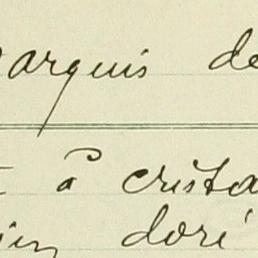 arquis de
à crista
doré